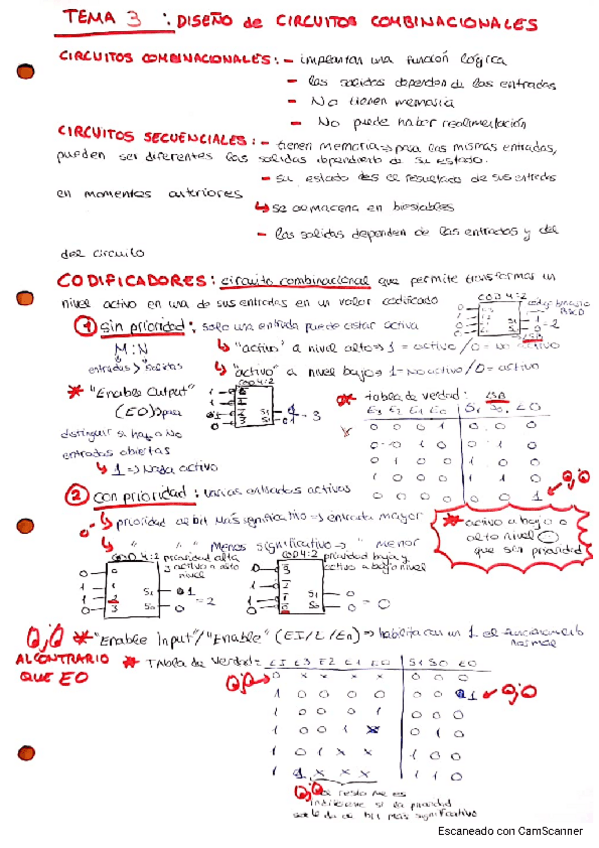 TEMA 3 : DISEÑO de CIRCUITOS COMBINACIONALES
CIRCUITOS COMBINACIONALES: - implantan una función lógica
- las salidas dependen de las entradas
- No tienen memoria
- No puede haber realimentación
CIRCUITOS SECUENCIALES: - tienen memoria => para las mismas entradas,
pueden ser diferentes las salidas dependiendo de su estado.
- su estado es el resultado de sus entradas
en momentos anteriores
↳ se almacena en biestables
- las salidas dependen de las entradas y del
del circuito
CODIFICADORES: circuito combinacional que permite transformar un
nivel activo en una de sus entradas en un valor codificado
COD 4:2
1 sin prioridad: solo una entrada puede estar activa
M:N
entradas > salidas
↳ "activo" a nivel alto => 1 = activo / 0 = no activo
↳ "activo" a nivel bajo => 1 = No activo / 0 = activo
* "Enable Output"
(EO) para
distinguir si hay o no
entradas abiertas
↳ 1 => Nada activo
COD 4:2
* tabla de verdad: LSB
E3 E2 E1 E0 S1 S0 EO
0 0 0 1 0 0 0
0 0 1 0 0 1 0
0 1 0 0 1 0 0
1 0 0 0 1 1 0
0 0 0 0 0 0 1 ← OjO
2 con prioridad: varias entradas activas
↳ prioridad de bit más significativo => entrada mayor
↳ " " " Menos significativo => " menor
* activo a bajo o
alto nivel
que ser prioridad
COD 4:2 prioridad alta
y activo a alto
nivel
= 2
COD 4:2 prioridad baja y
activo a bajo nivel
= 0
OjO * "Enable Input"/"Enable" (EI/L/En) => habilita con un 1 el funcionamiento
normal
AL CONTRARIO
QUE EO
* Tabla de verdad = EI E3 E2 E1 E0 S1 S0 EO
OjO 0 x x x x 0 0 0
1 0 0 0 0 0 0 1 ← OjO
1 0 0 0 1 0 0 0
1 0 0 1 x 0 1 0
1 0 1 x x 1 0 0
1 1 x x x 1 1 0
OjO resto me es
indiferente si la prioridad
es la de bit más significativo
Escaneado con CamScanner